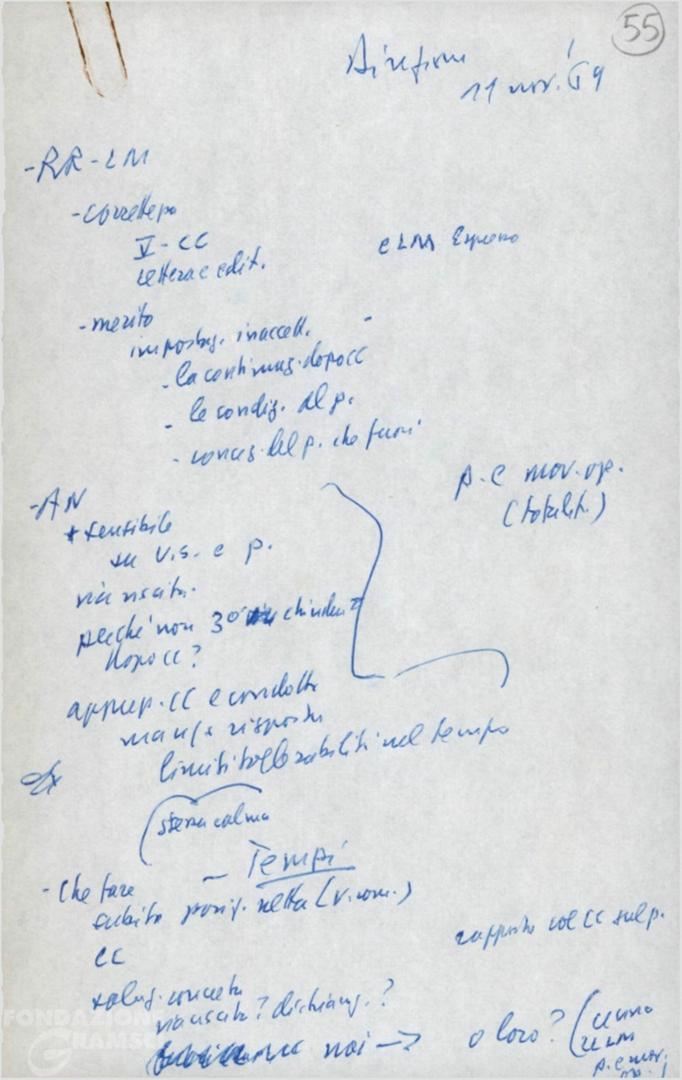 55
Direzione
11 nov. '69
- RR - LM
- correttezza
V - CC
lettera e edit.
e LM Espresso
- merito
impostaz. inaccett.
- la continuaz. dopo CC
- le condiz. del p.
- concez. del p. che fuori
- AN
+ sensibile
su U.S. e p.
via uscita.
p. e mov. op.
(totalit.)
perché non 3° chiudere
dopo CC?
approp. CC e condotta
manca risposta
limiti tollerabilità nel tempo
stessa calma
- Tempi
- Che fare
subito posiz. netta (v. com.)
CC
rapporto col CC sul p.
soluz. concreta
via uscita? dichiaraz.?
noi → o loro?
FONDAZIONE
GRAMSCI